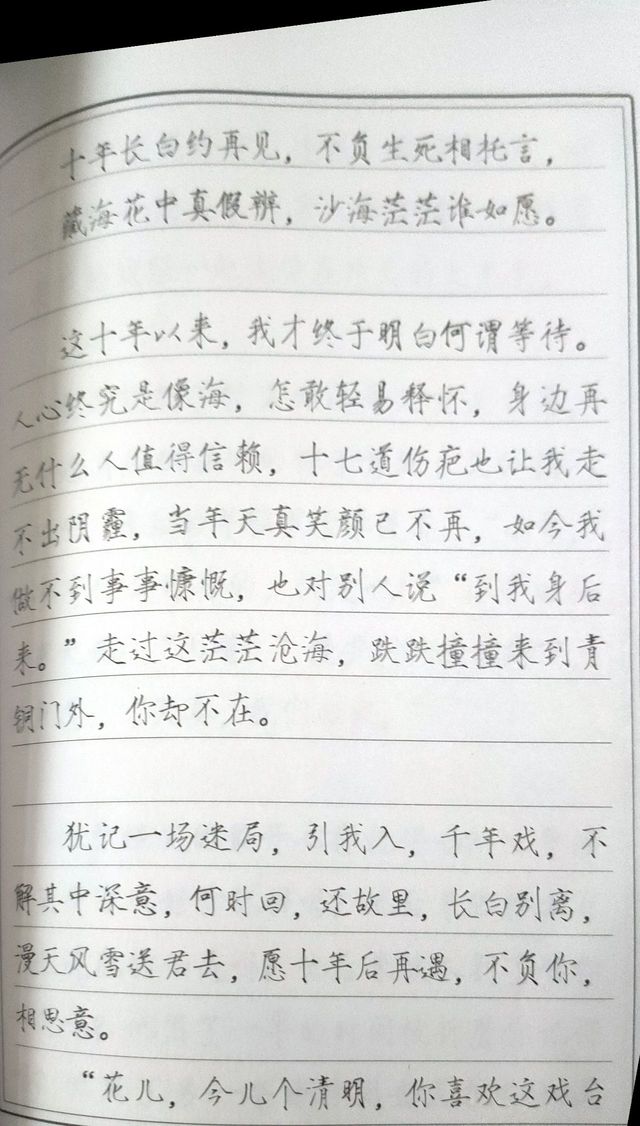 十年长白约再见，不负生死相托言，
藏海花中真假辨，沙海茫茫谁如愿。
这十年以来，我才终于明白何谓等待。
人心终究是像海，怎敢轻易释怀，身边再
无什么人值得信赖，十七道伤疤也让我走
不出阴霾，当年天真笑颜已不再，如今我
做不到事事慷慨，也对别人说“到我身后
来。”走过这茫茫沧海，跌跌撞撞来到青
铜门外，你却不在。
犹记一场迷局，引我入，千年戏，不
解其中深意，何时回，还故里，长白别离，
漫天风雪送君去，愿十年后再遇，不负你，
相思意。
“花儿，今儿个清明，你喜欢这戏台